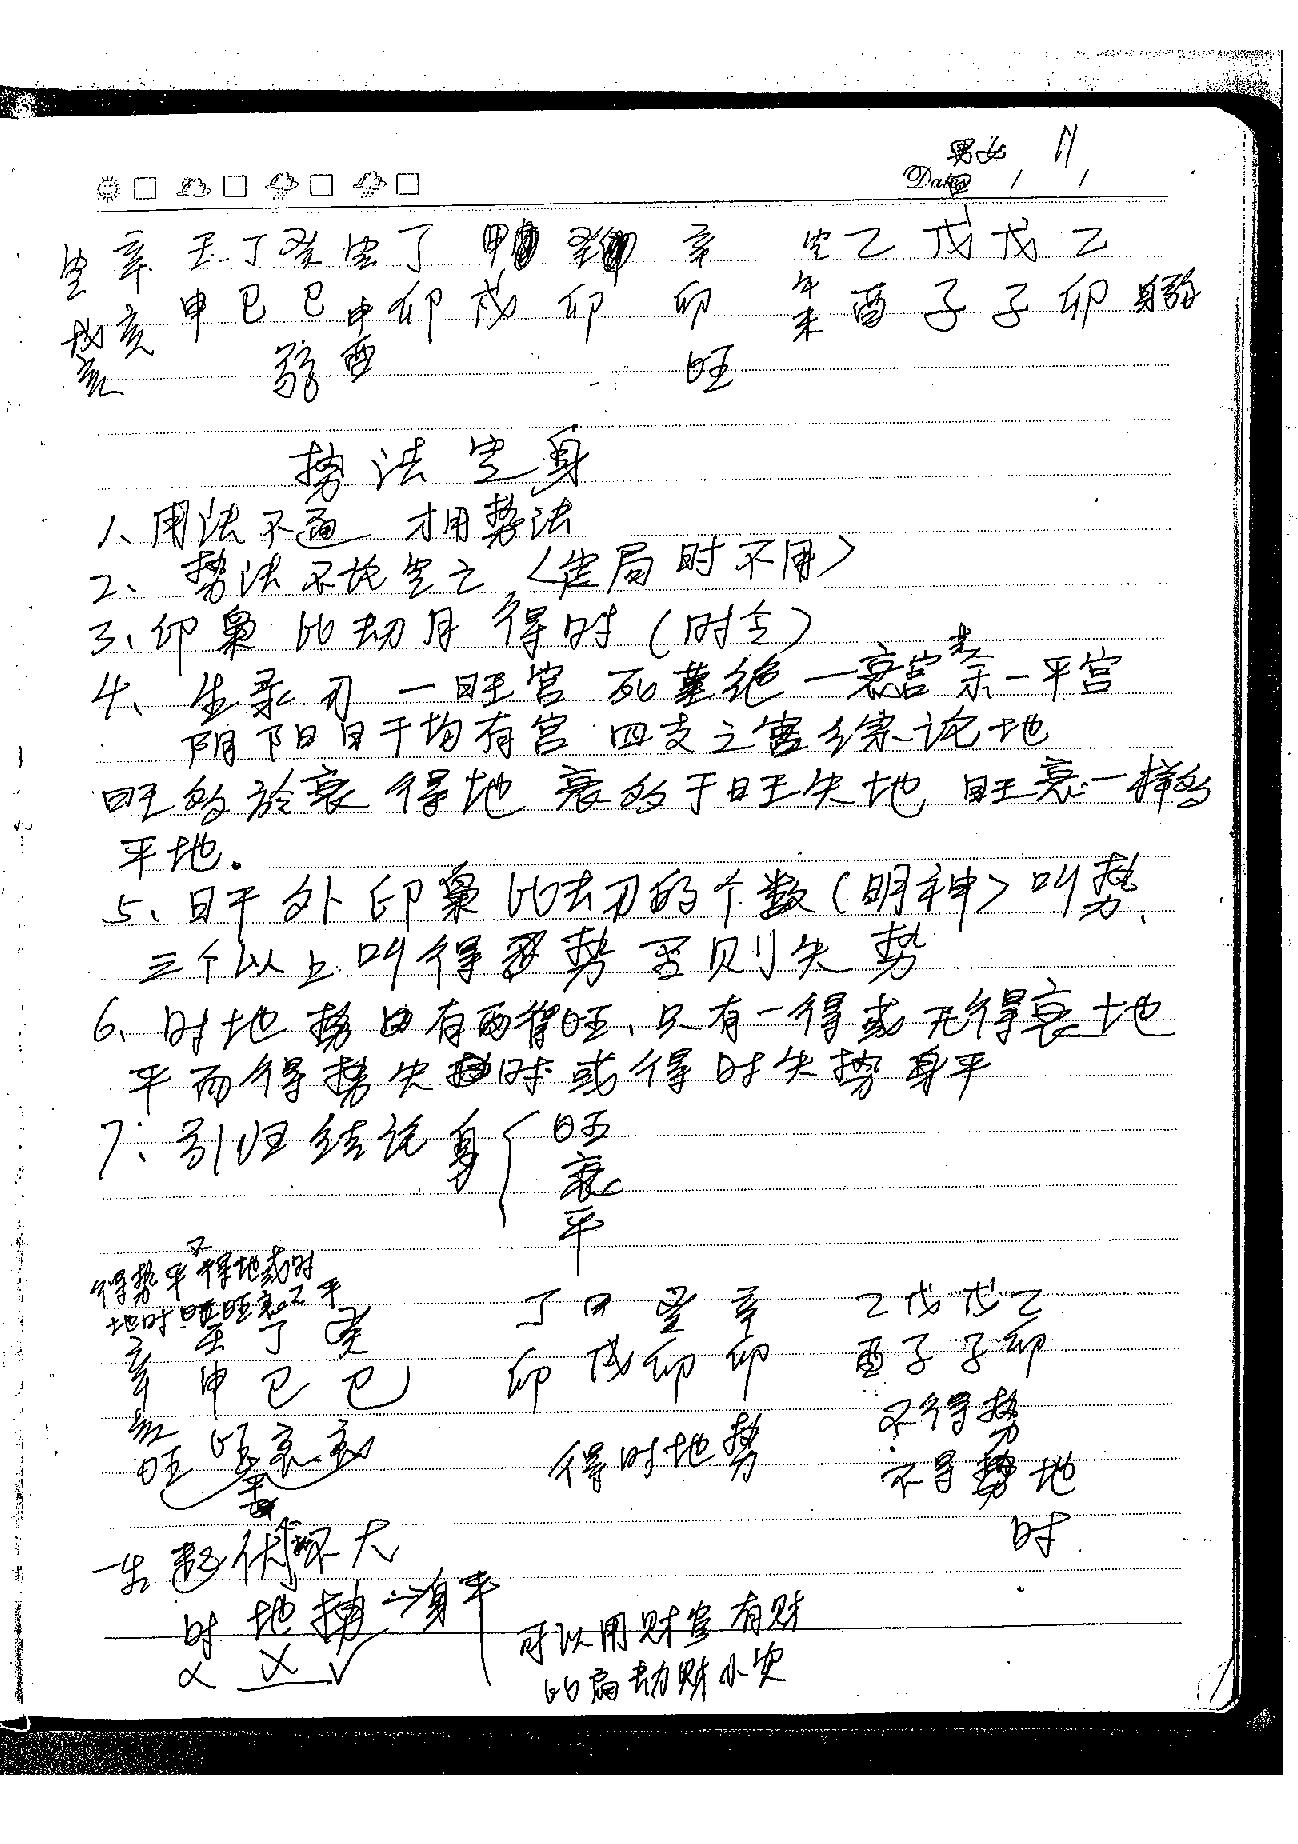 男女 11
Da
空 辛 壬 丁 癸 空 丁 甲 癸 辛 空 乙 戊 戊 乙
戌亥 亥 申 巳 巳 申酉 卯 戌 卯 卯 午未 酉 子 子 卯 身弱
弱 旺
势法定身
1、用法不通 才用势法
2、势法不论空亡(定局时不用)
3、印枭比劫月得时(时令)
4、生录刃一旺宫 死墓绝一衰宫 其余一平宫
阴阳日干均有宫 四支之宫综论地
旺的於衰得地 衰的于旺失地 旺衰一样的
平地.
5、日干外印枭比劫刃的个数(明神)叫势、
三个以上叫得势否则失势
6、时地势由有两得旺、只有一得或无得衰地
平而得势失时或得时失势身平
7、引归结论身{旺
衰
平
得势平 又得地或时
地时
辛 壬 丁 癸 丁 日 癸 辛 乙 戊 戊 乙
亥 申 巳 巳 卯 戌 卯 卯 酉 子 子 卯
旺 旺 衰 衰 得时地势 不得势
平 不得地
时
一生起伏不大
时 地 势 身平
× × ✓
可以用财官有财
的为劫财小灾